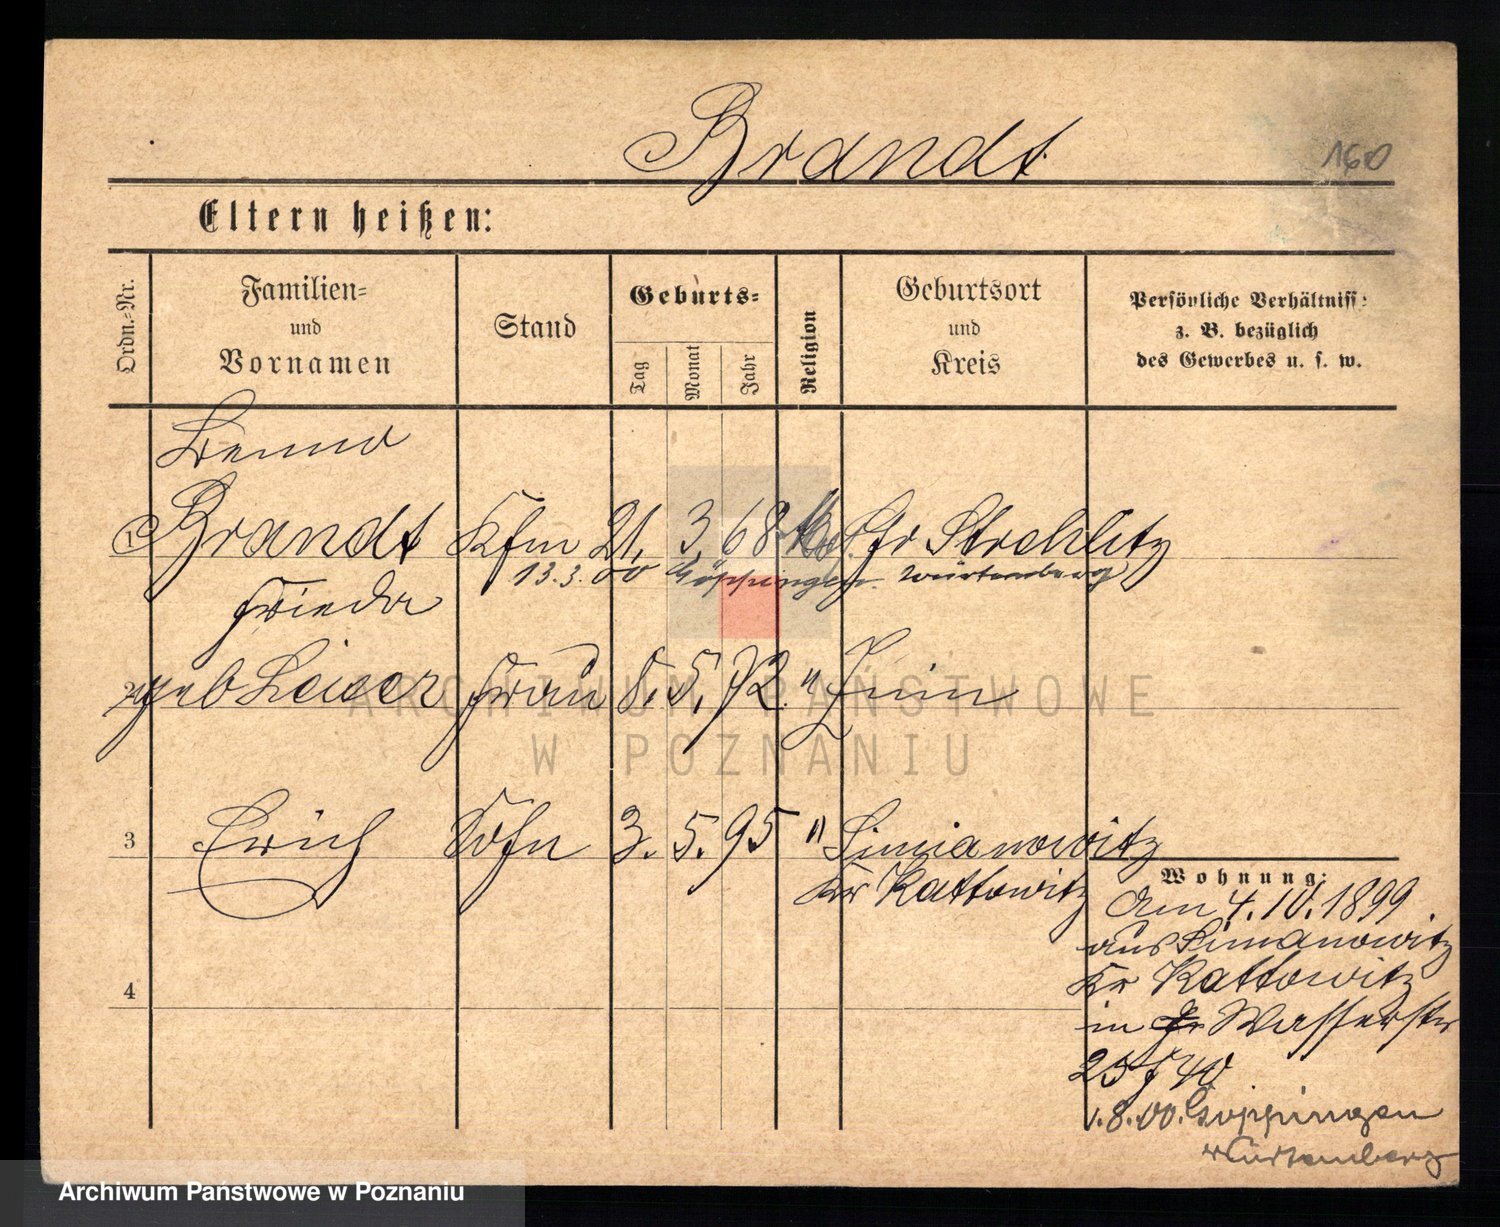 Brandt
160
Eltern heißen:
Ordn.-Nr.
Familien-
und
Vornamen
Stand
Geburts-
Tag
Monat
Jahr
Religion
Geburtsort
und
Kreis
Persönliche Verhältniss:
z. B. bezüglich
des Gewerbes u. s. w.
Benno
1 Brandt Kfm 21. 3. 68 Gr Strehlitz
13.3.00 Göppingen Württemberg
Frieda
geb Frau 8. 5. 72. "
3 Erich Sohn 3. 5. 95 " Simianowitz
Kr Kattowitz
Wohnung:
Am 4.10.1899
aus Simianowitz
Kr Kattowitz
4
in Wasserstr
25 f 40
1.8.00. Göppingen
Württemberg
ARCHIWUM PAŃSTWOWE
W POZNANIU
Archiwum Państwowe w Poznaniu